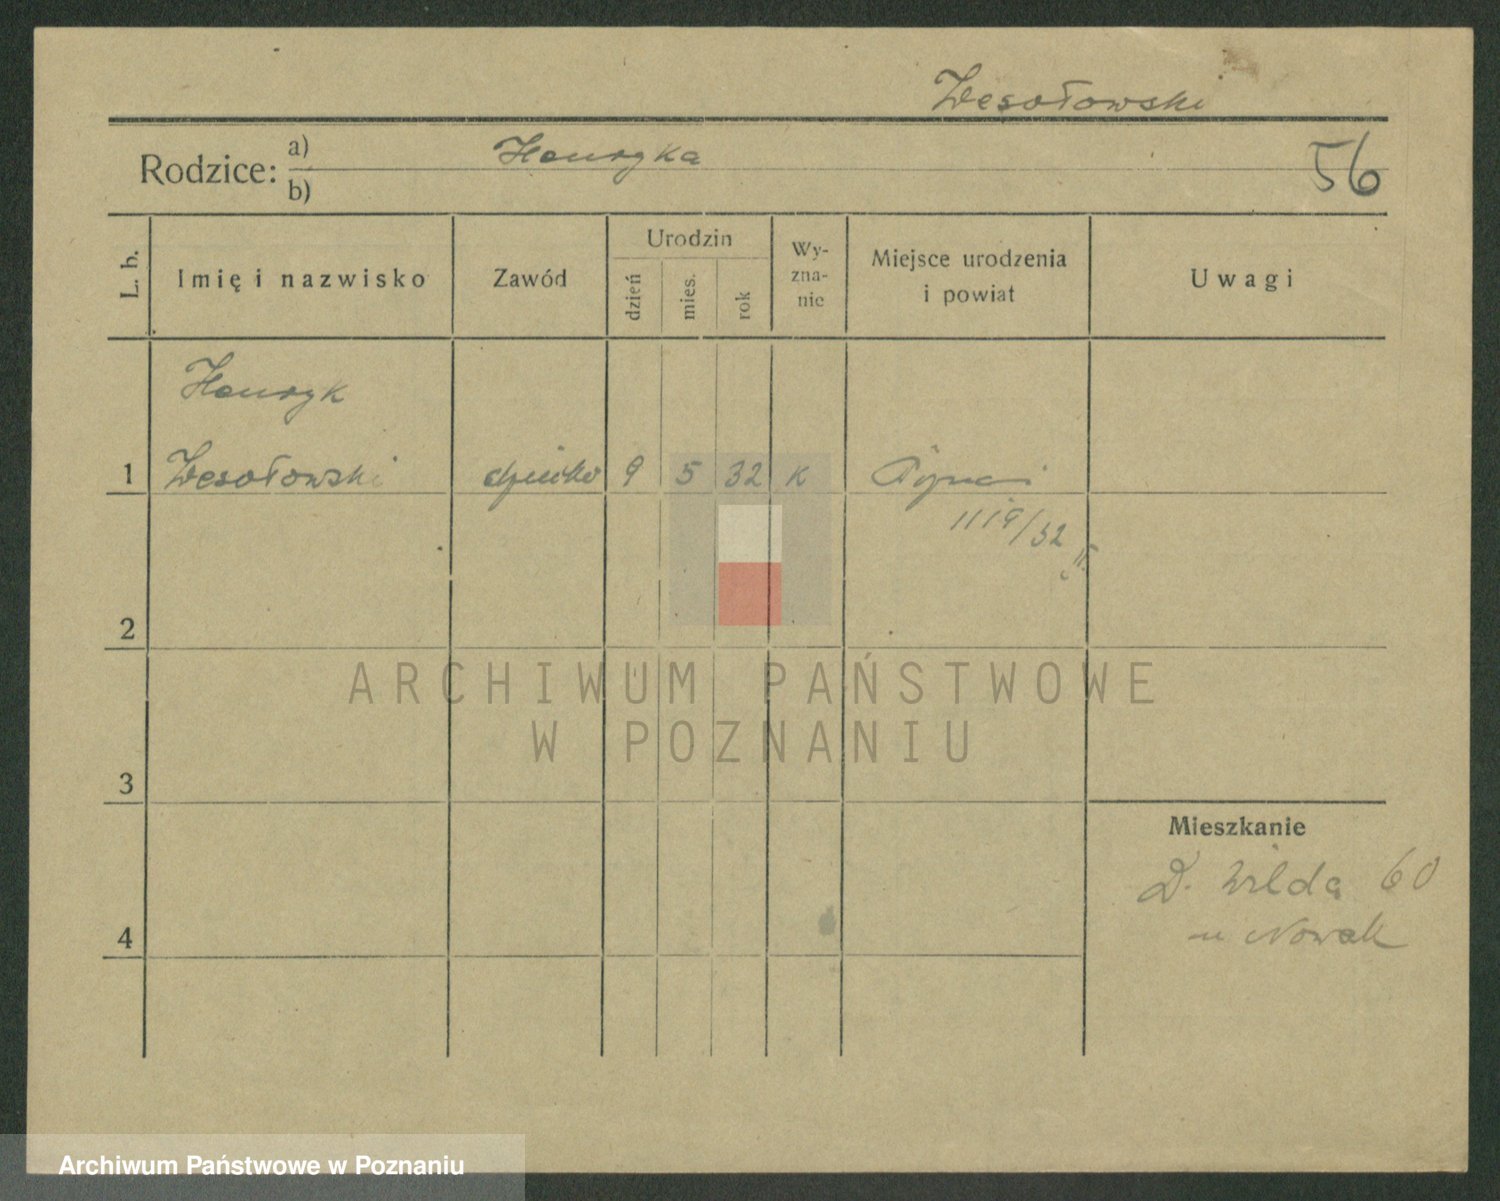 Wesołowski
Rodzice: a) Henryka
b)
56
L. b.
Imię i nazwisko
Zawód
Urodzin
dzień
mies.
rok
Wy-
zna-
nie
Miejsce urodzenia
i powiat
Uwagi
Henryk
1 Wesołowski dziecko 9 5 32 K
1119/32
2
ARCHIWUM PAŃSTWOWE
W POZNANIU
3
Mieszkanie
D. Wilda 60
u Nowak
4
Archiwum Państwowe w Poznaniu